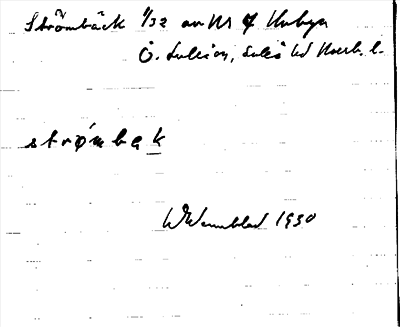 Strömbäck 1/32 av Nr 4 Kubyn
Ö. Luleå sn, Luleå td Norrb. l.
strø̀mbak
W Wennblad 1930